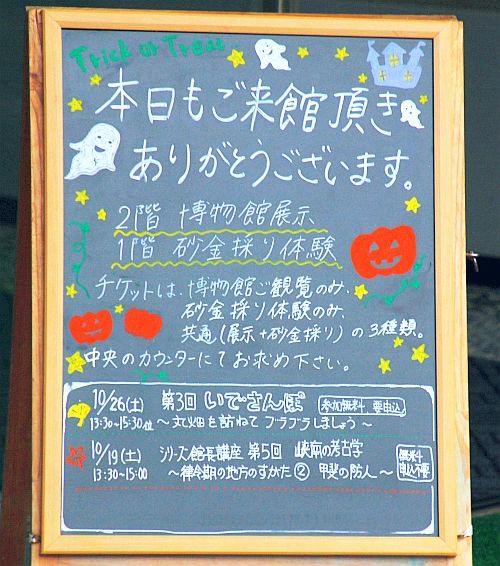 Trick or Treat
本日もご来館頂き
ありがとうございます。
2階 博物館展示
1階 砂金採り体験
チケットは、博物館ご観覧のみ、
砂金採り体験のみ、
共通(展示+砂金採り)の3種類。
中央のカウンターにてお求め下さい。
10/26(土) 第3回 いでさんぽ 参加無料 要申込
13:30~15:30位 ~丸畑を訪ねて ブラブラしましょう~
10/19(土) シリーズ館長講座 第5回 峡南の考古学 無料 申込不要
13:30~15:00 ~律令期の地方のすがた② 甲斐の防人~